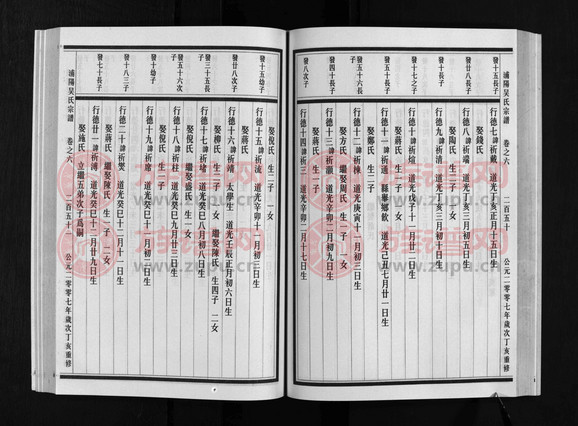 發十五長子
行德七諱祈戴 道光丁亥正月十五日生
娶錢氏
發廿八長子
行德八諱祈喘 道光丁亥三月初五日生
娶陶氏 生二子 一女
發八長子
行德九諱祈清 道光丁亥三月初十日生
娶蔣氏 生二子
發十七之子
行德十諱祈煊 道光戊子十一月初二日生
娶蔣氏 生一子
發五十長子
行德十一諱祈通 縣舉鄉飲 道光己丑七月廿一日生
娶鄭氏 生三子
發五十六長子
行德十二諱祈棟 道光庚寅十一月初九日生
娶方氏 繼娶周氏 生一子 一女
發四十長子
行德十三諱祈灝 道光辛卯二月初六日生
娶蔣氏 生一子
發八次子
行德十四諱祈三 道光辛卯二月十七日生
浦陽吳氏宗譜 卷之六 二百五十 公元二零零七年歲次丁亥重修
發十五幼子
行德十五諱祈流 道光辛卯十一月初三日生
娶倪氏 生二子 一女
發廿八次子
行德十六諱祈靖 太學生 道光壬辰正月初六日生
娶蔣氏
娶柳氏 生一子 一女 繼娶陳氏 生四子 二女
發三十五長子
行德十七諱祈堵 道光癸巳八月初八日生
娶倪氏 繼娶盛氏 生一子
發五十六次子
行德十八諱祈柱 道光癸巳九月廿三日生
娶倪氏 生二子
發十幼子
行德十九諱祈席 道光癸巳十一月初二日生
發十八三子
行德二十諱祈熒 道光癸巳十二月十一日生
娶蔣氏 繼娶陳氏 生一子 二女
發七十長子
行德廿一諱祈溥 道光癸巳十二月廿九日生
娶施氏 立繼五弟次子為嗣
浦陽吳氏宗譜 卷之六 二百五十一 公元二零零七年歲次丁亥重修
族譜网
www.zupu.cn
族譜网
www.zupu.cn